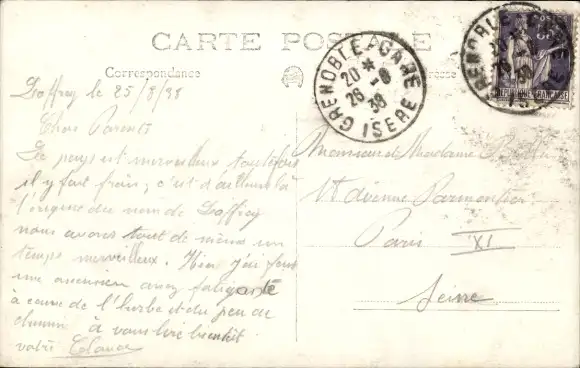 CARTE POSTALE
Correspondance
Adresse
GRENOBLE-GARE
20 *
26 - 8
38
ISERE
REPUBLIQUE FRANÇAISE
Laffrey le 25/8/38
Chers Parents
Le pays est merveilleux toutefois
il y fait frais, c'est d'ailleurs là
l'origine du nom de Laffrey
nous avons tout de même un
temps merveilleux. Hier j'ai fait
une ascension assez fatigante
à cause de l'herbe et du peu de
chemin à vous lire bientôt
votre Claude
Monsieur et Madame
avenue Parmentier
Paris XI
Seine